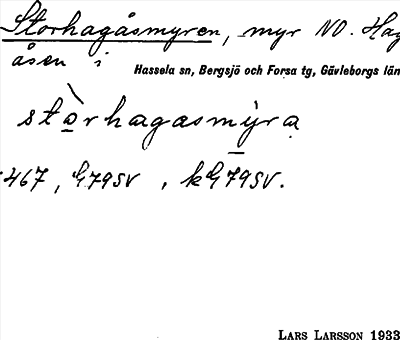 Storhagåsmyren, myr NO. Hag
åsen i
Hassela sn, Bergsjö och Forsa tg, Gävleborgs län
stòrhagasmyra
467, G79SV, kG79SV.
LARS LARSSON 1933